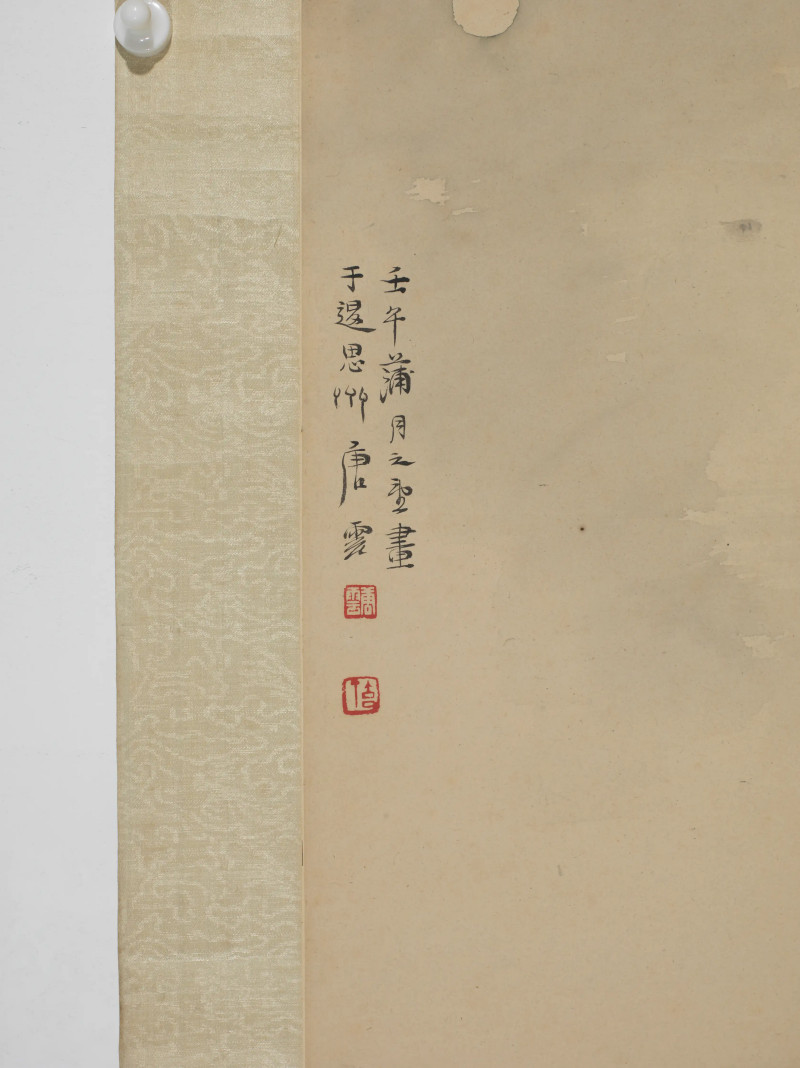 壬午蒲月之望畫
于退思艸唐雲
唐雲